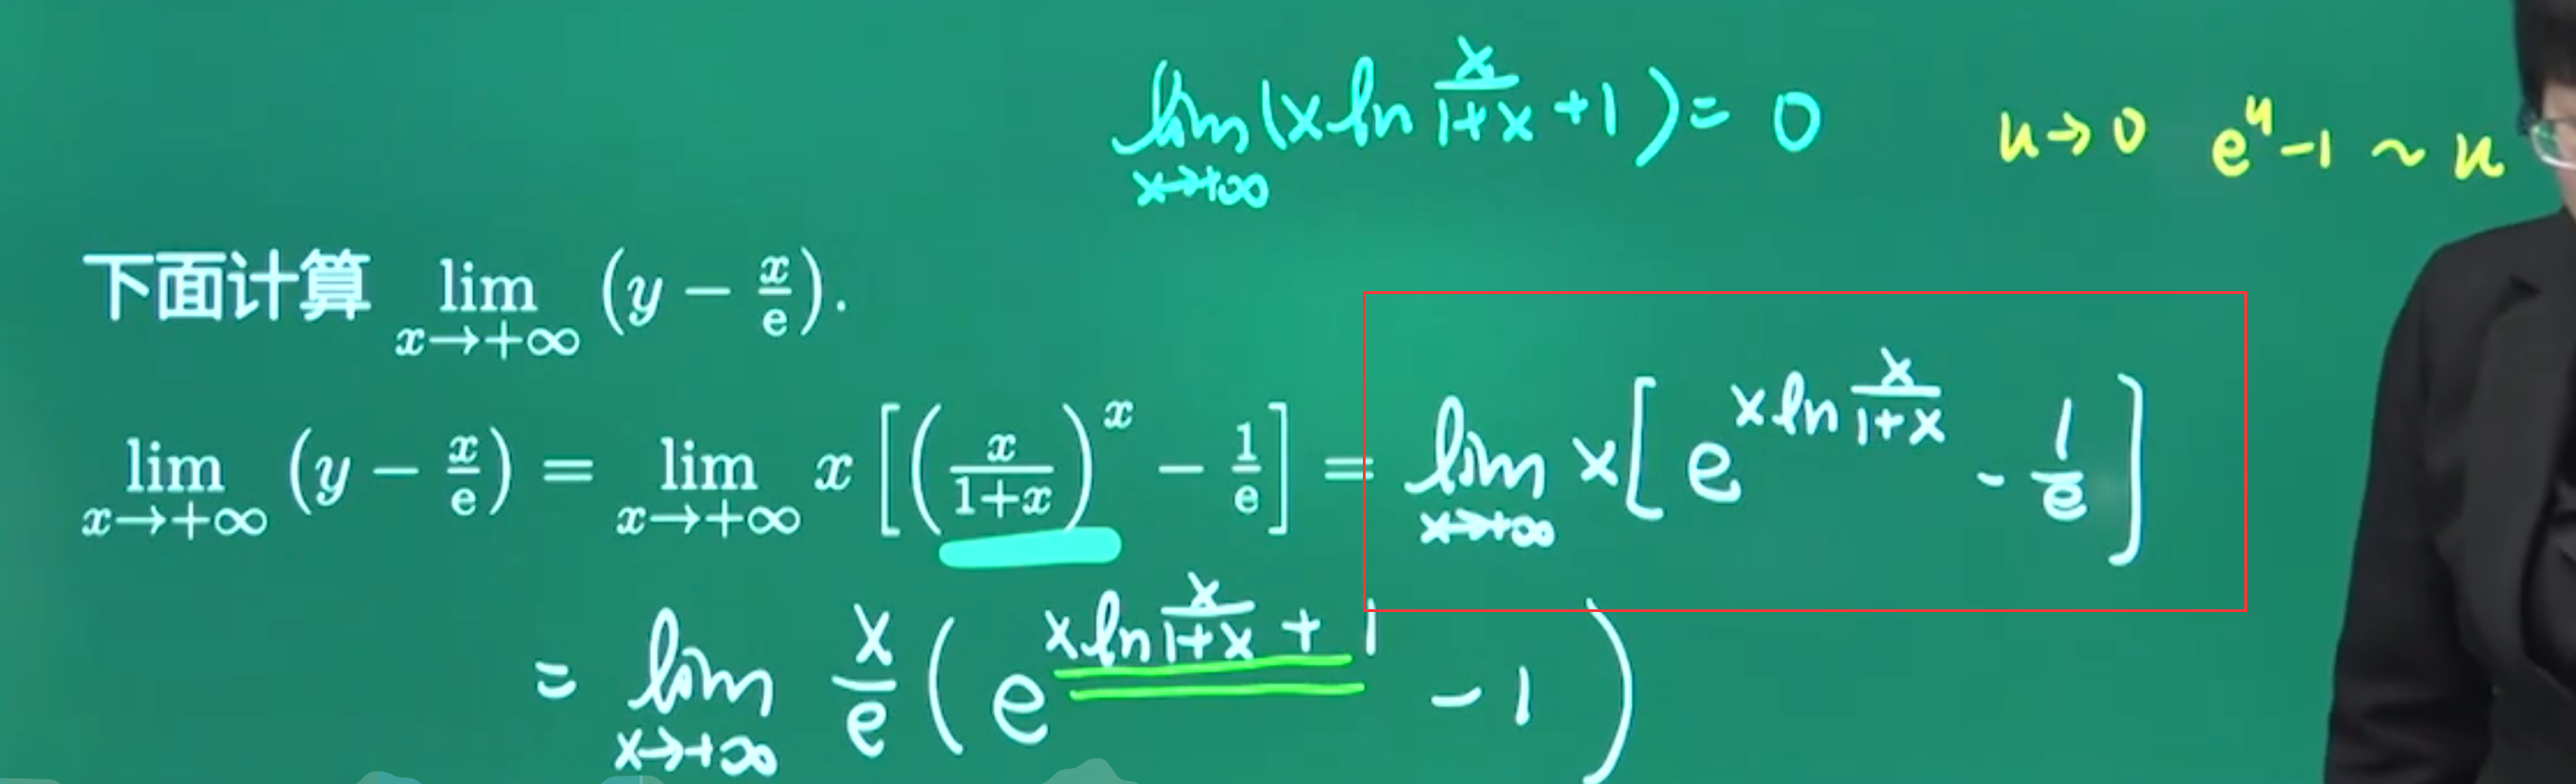 lim_{x→+∞} (x ln x/(1+x) + 1) = 0 u→0 e^u - 1 ~ u
下面计算 lim_{x→+∞} (y - x/e).
lim_{x→+∞} (y - x/e) = lim_{x→+∞} x [(x/(1+x))^x - 1/e] = lim_{x→+∞} x [e^{x ln x/(1+x)} - 1/e]
= lim_{x→+∞} x/e (e^{x ln x/(1+x) + 1} - 1)